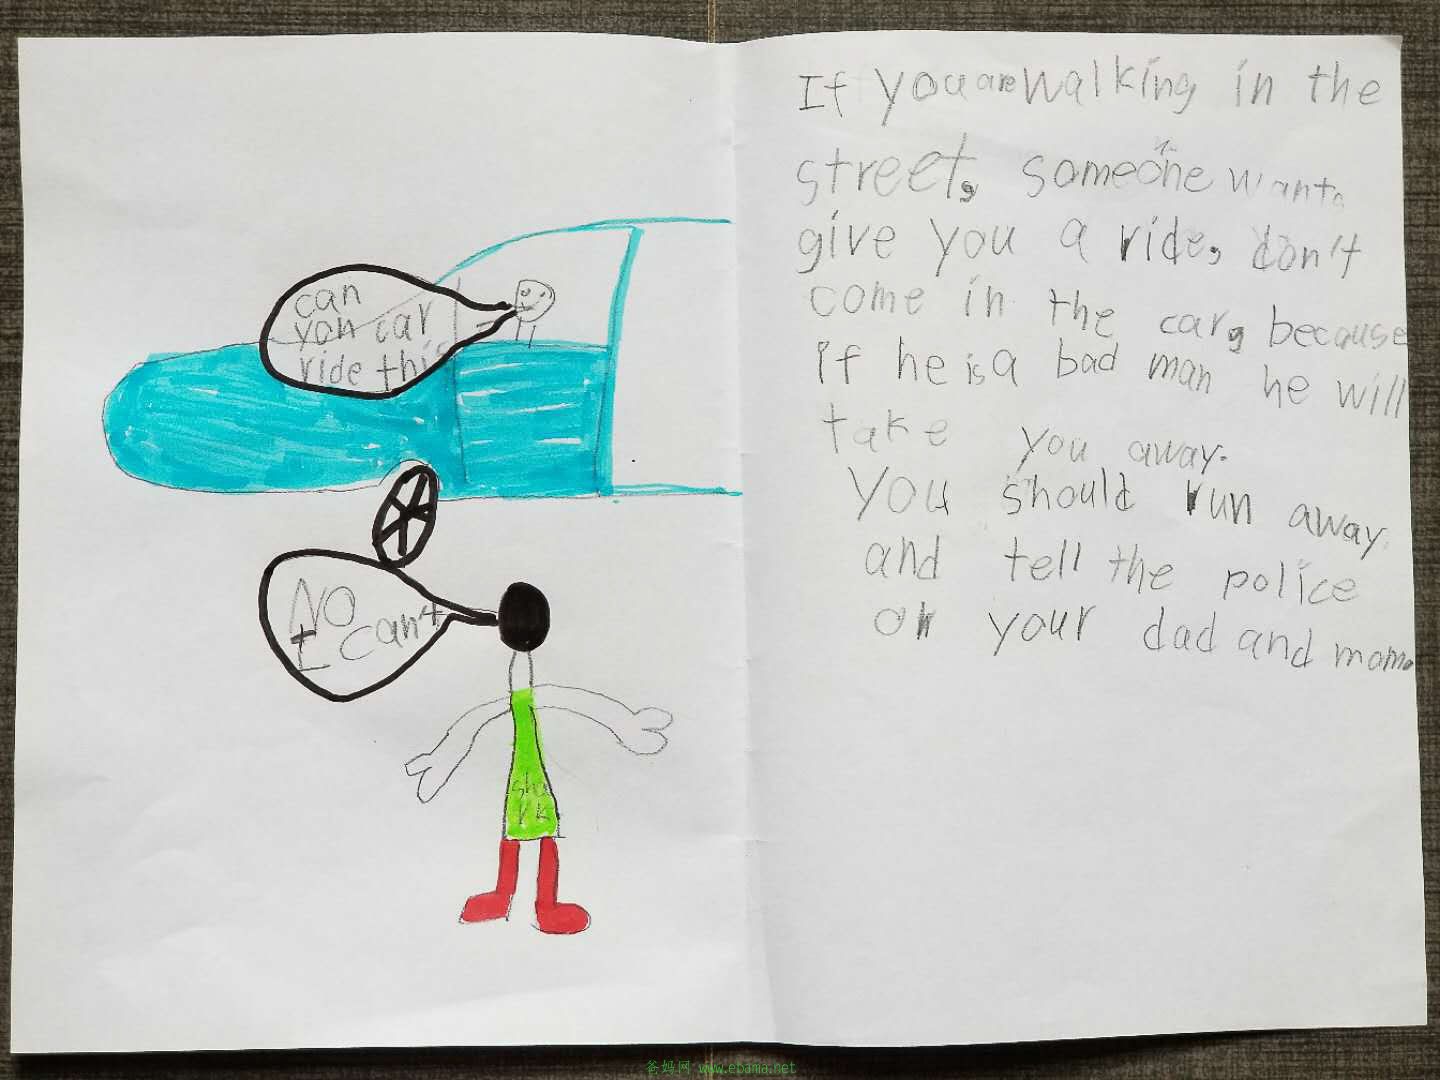 can
you car
ride this
NO
I can't
sha
rk
If you are walking in the
street, someone want
give you a ride, don't
come in the car, because
if he is a bad man he will
take you away.
You should run away
and tell the police
or your dad and mom.
爸妈网 www.ebama.net